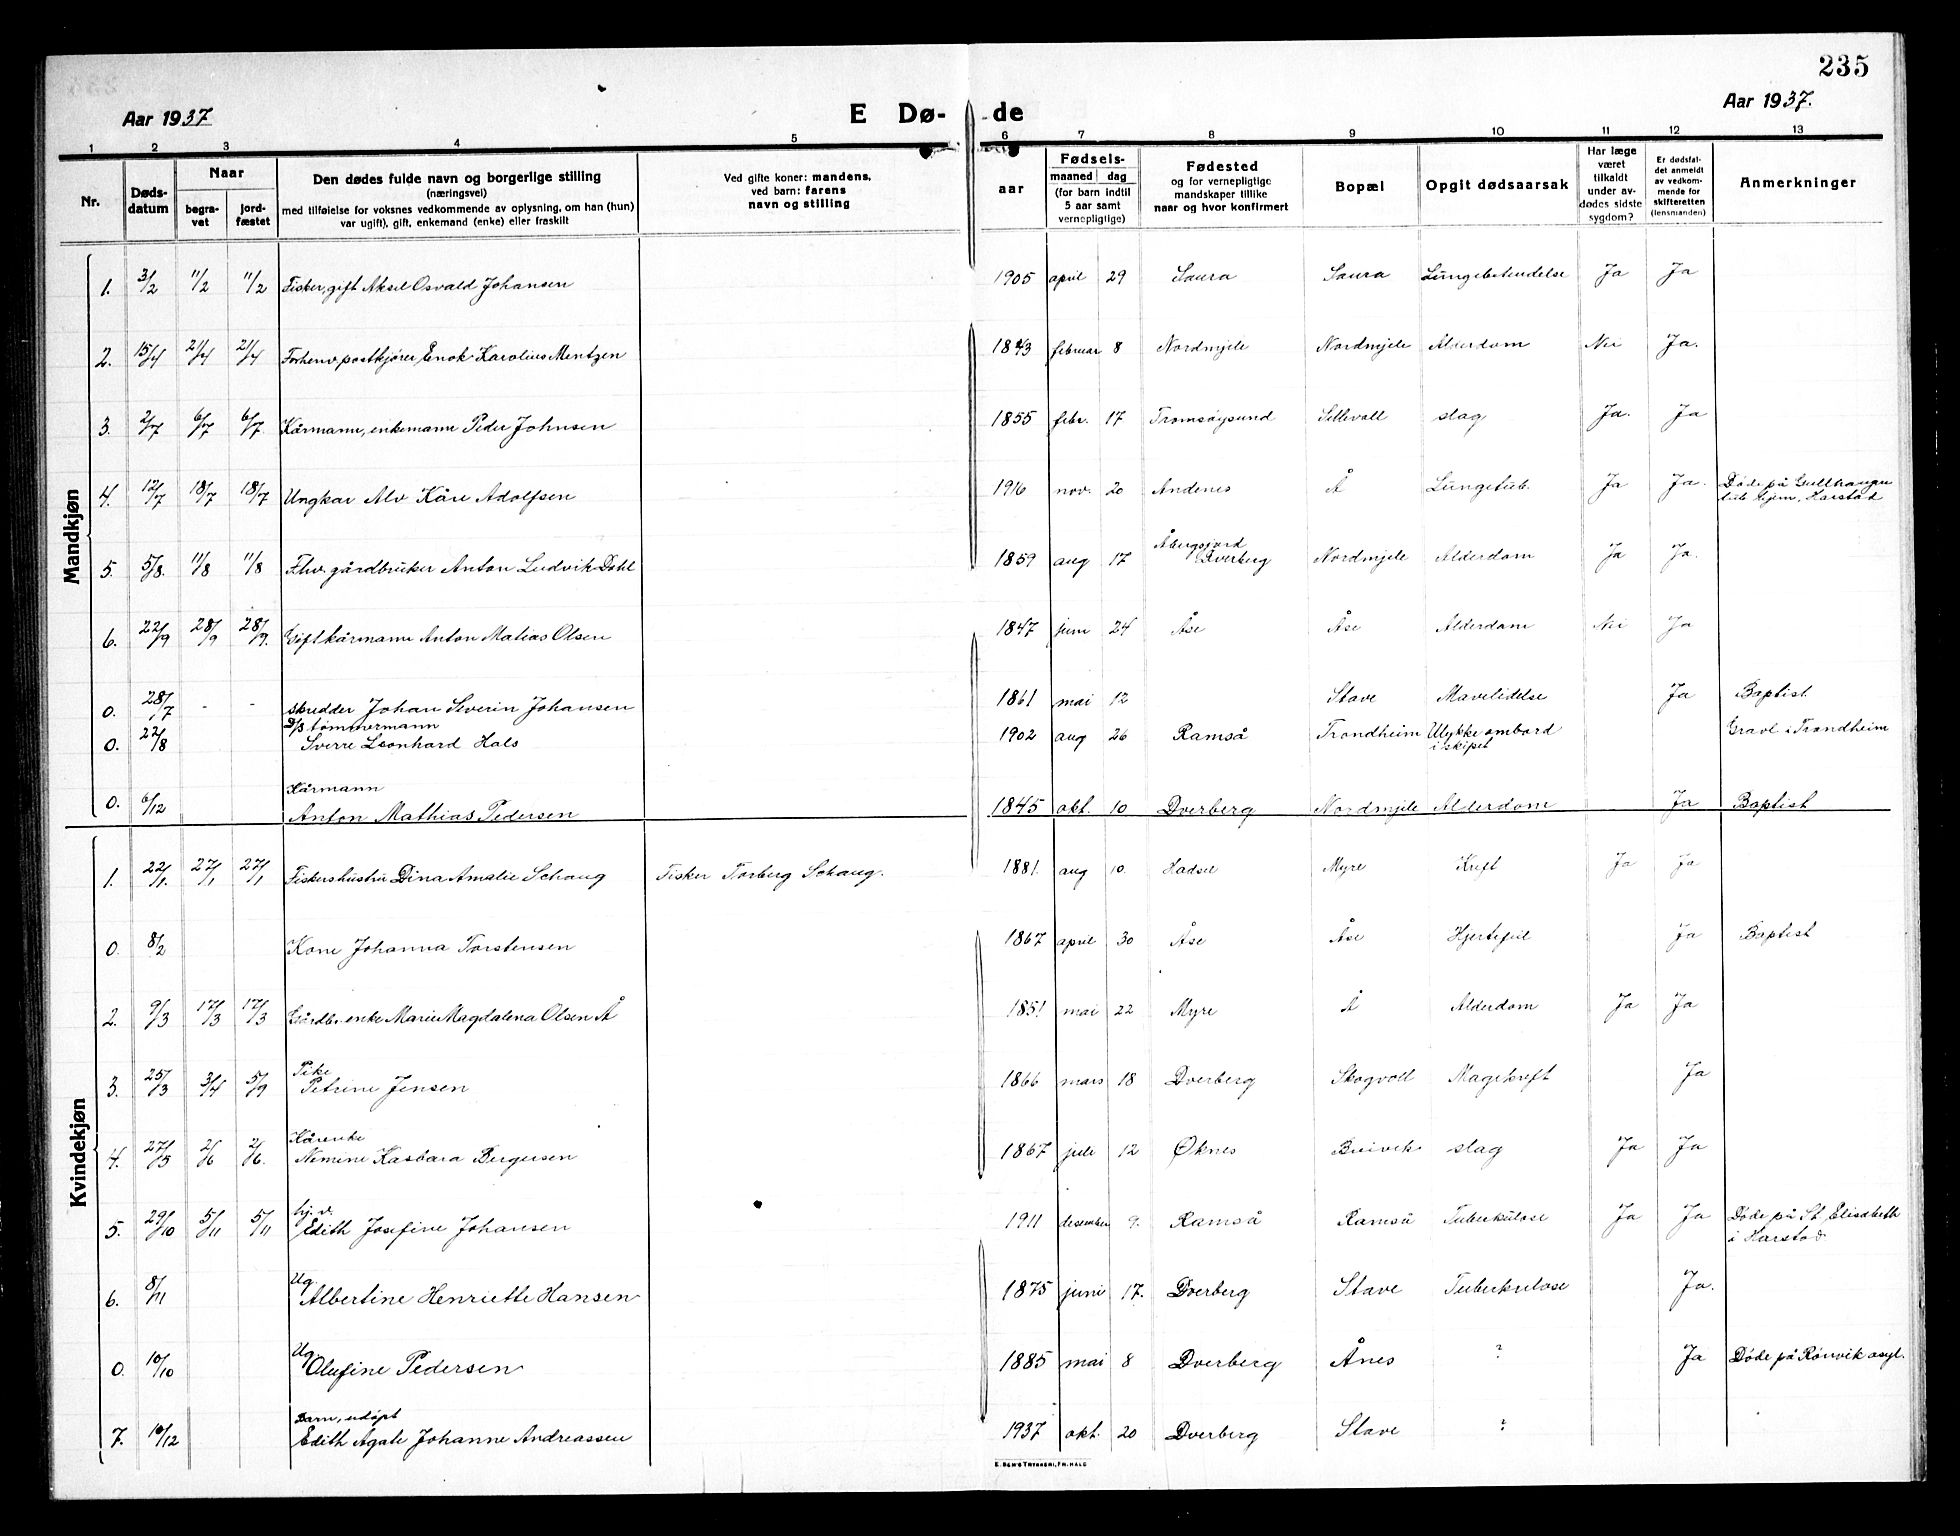 235
Aar 1937
E Dø-
de
Aar 1937.
1 2 3 4 5 6 7 8 9 10 11 12 13
Nr.
Døds-
datum
Naar
begra-
vet
jord-
fæstet
Den dødes fulde navn og borgerlige stilling
(næringsvei)
med tilføielse for voksnes vedkommende av oplysning, om han (hun)
var ugift), gift, enkemand (enke) eller fraskilt
Ved gifte koner: mandens,
ved barn: farens
navn og stilling
aar
Fødsels-
maaned dag
(for barn indtil
5 aar samt
vernepligtige)
Fødested
og for vernepligtige
mandskaper tillike
naar og hvor konfirmert
Bopæl
Opgit dødsaarsak
Har læge
været
tilkaldt
under av-
dødes sidste
sygdom?
Er dødsfal-
det anmeldt
av vedkom-
mende for
skifteretten
(lensmanden)
Anmerkninger
Mandkjøn
1. 3/2 11/2 11/2 Fisker, gift Aksel Osvald Johansen 1905 april 29 Saura Saura Lungebetendelse Ja Ja
2. 15/4 21/4 21/4 Forhenv. postkjører Enok Karolius Mentzen 1843 februar 8 Nordmjele Nordmjele Alderdom Nei Ja.
3. 2/7 6/7 6/7. Kårmann, enkemann Peder Johnsen 1855 febr. 17 Tromsøysund Sellevoll slag Ja. Ja
4. 12/7 18/7 18/7 Ungkar Alv Kåre Adolfsen 1916 nov. 20 Andenes Å Lungetub. Ja Ja. Døde på Gullhaugen
tub. hjem, Harstad
5. 5/8. 11/8 11/8 Fhv. gårdbruker Anton Ludvik Dahl 1859 aug 17 Åbergsjord
Dverberg Nordmjele Alderdom Ja Ja.
6. 22/9 28/9 28/9. Gift kårmann Anton Matias Olsen 1847 juni 24 Åse Åse Alderdom Nei Ja
0. 28/7 - - skredder Johan Severin Johansen 1861 mai 12 Stave Mavelidelse Ja Baptist
D/S tømmermann
0. 22/8 Sverre Leonhard Hals 1902 aug 26 Ramså Trondheim Ulykke ombord
i skipet Gravl. i Trondheim
Kårmann
0. 6/12 Anton Mathias Pedersen 1845 okt. 10 Dverberg Nordmjele Alderdom Ja Baptist
Kvindekjøn
1. 22/1. 27/1 27/1 Fiskershustru Dina Amalie Schaug Fisker Torberg Schaug. 1881. aug 10. Hadsel Myre Kreft Ja Ja
0. 8/2 Kone Johanna Torstensen 1867 april 30 Åse Åse Hjertefeil Ja Baptist
2. 9/3 17/3 17/3 Gårdbr. enke Marie Magdalena Olsen Å 1851 mai 22 Myre Å Alderdom Ja Ja
Pike
3. 25/3 3/4 5/9 Petrine Jensen 1866 mars 18 Dverberg Skogvoll Magekreft Ja
Kårenke
4. 27/5 2/6 2/6. Nemine Kasbara Bergersen 1867 juli 12 Øknes Breivik slag Ja Ja
hj. v.
5. 29/10 5/11 5/11 Edith Josefine Johansen 1911 desember 9. Ramså Ramså Tuberkulose Ja Ja Døde på St. Elisabeth
i Harstad.
Ug.
6. 8/11 Albertine Henriette Hansen 1875 juni 17. Dverberg Stave Tuberkulose Ja.
Ug.
0. 10/10 Olufine Pedersen 1885 mai 8 Dverberg Ånes ? Ja Døde på Rønvik asyl.
Barn, udøpt
7. 10/12 Edith Agate Johanne Andreassen 1937 okt. 20 Dverberg Stave ?